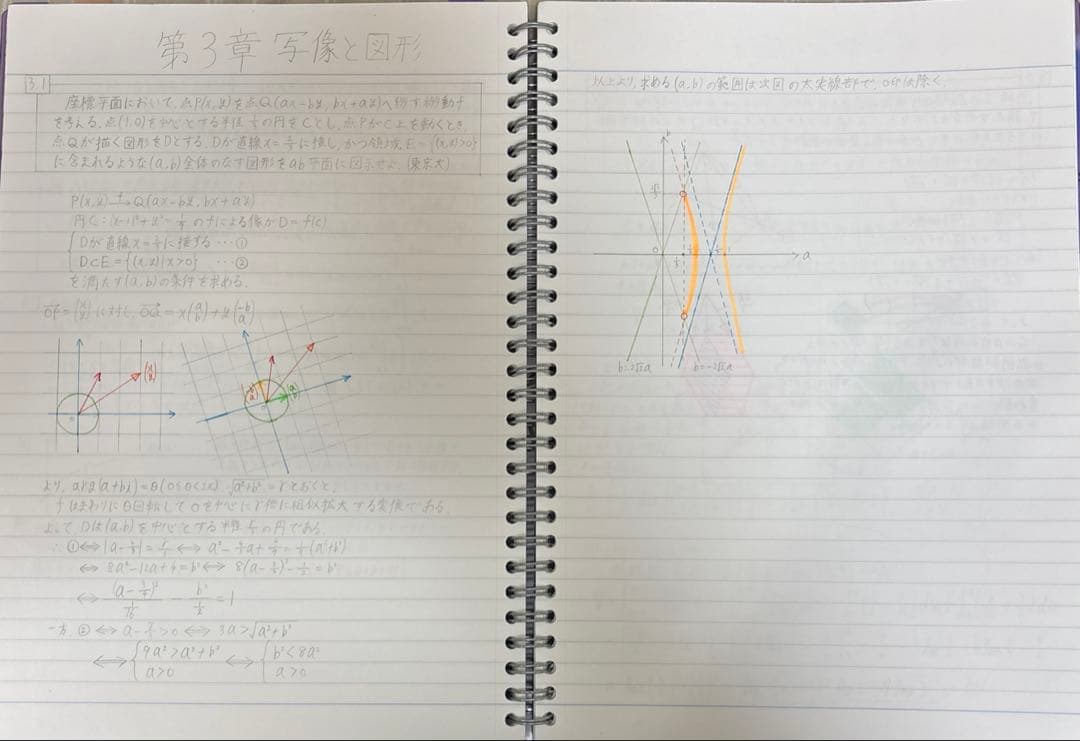 第3章 写像と図形
3.1
座標平面において、点P(x,y)を点Q(ax-by, bx+ay)へ移す移動f
を考える。点(1,0)を中心とする半径1/3の円をCとし、点PがC上を動くとき、
点Qが描く図形をDとする。Dが直線x=2/3に接し、かつ領域E={(x,y)|x>0}
に含まれるような(a,b)全体のなす図形をab平面に図示せよ。(東京大)
P(x,y) f→ Q(ax-by, bx+ay)
円C:(x-1)²+y²=1/9のfによる像がD=f(C)
Dが直線x=2/3に接する …①
D⊂E={(x,y)|x>0} …②
を満たす(a,b)の条件を求める。
OP=(x y)に対し、OQ=x(a b)+y(-b a)
(x y)
(-b a)
(a b)
より、arg(a+bi)=θ(0≤θ<2π) √a²+b²=rとおくと、
fはまわりにθ回転してOを中心にr倍に相似拡大する変換である。
よって、Dは(a,b)を中心とする半径r/3の円である。
∴①⇔|a-2/3|=r/3⇔a²-4/3a+4/9=1/9(a²+b²)
⇔8a²-12a+4=b²⇔8(a-3/4)²-1/2=b²
⇔(a-3/4)²/(1/16)-b²/(1/2)=1
一方、②⇔a-r/3>0⇔3a>√a²+b²
⇔{9a²>a²+b² a>0 ⇔{b²<8a² a>0
以上より、求める(a,b)の範囲は次図の太実線部で、○印は除く。
b
O
a
b=2√2a
b=-2√2a